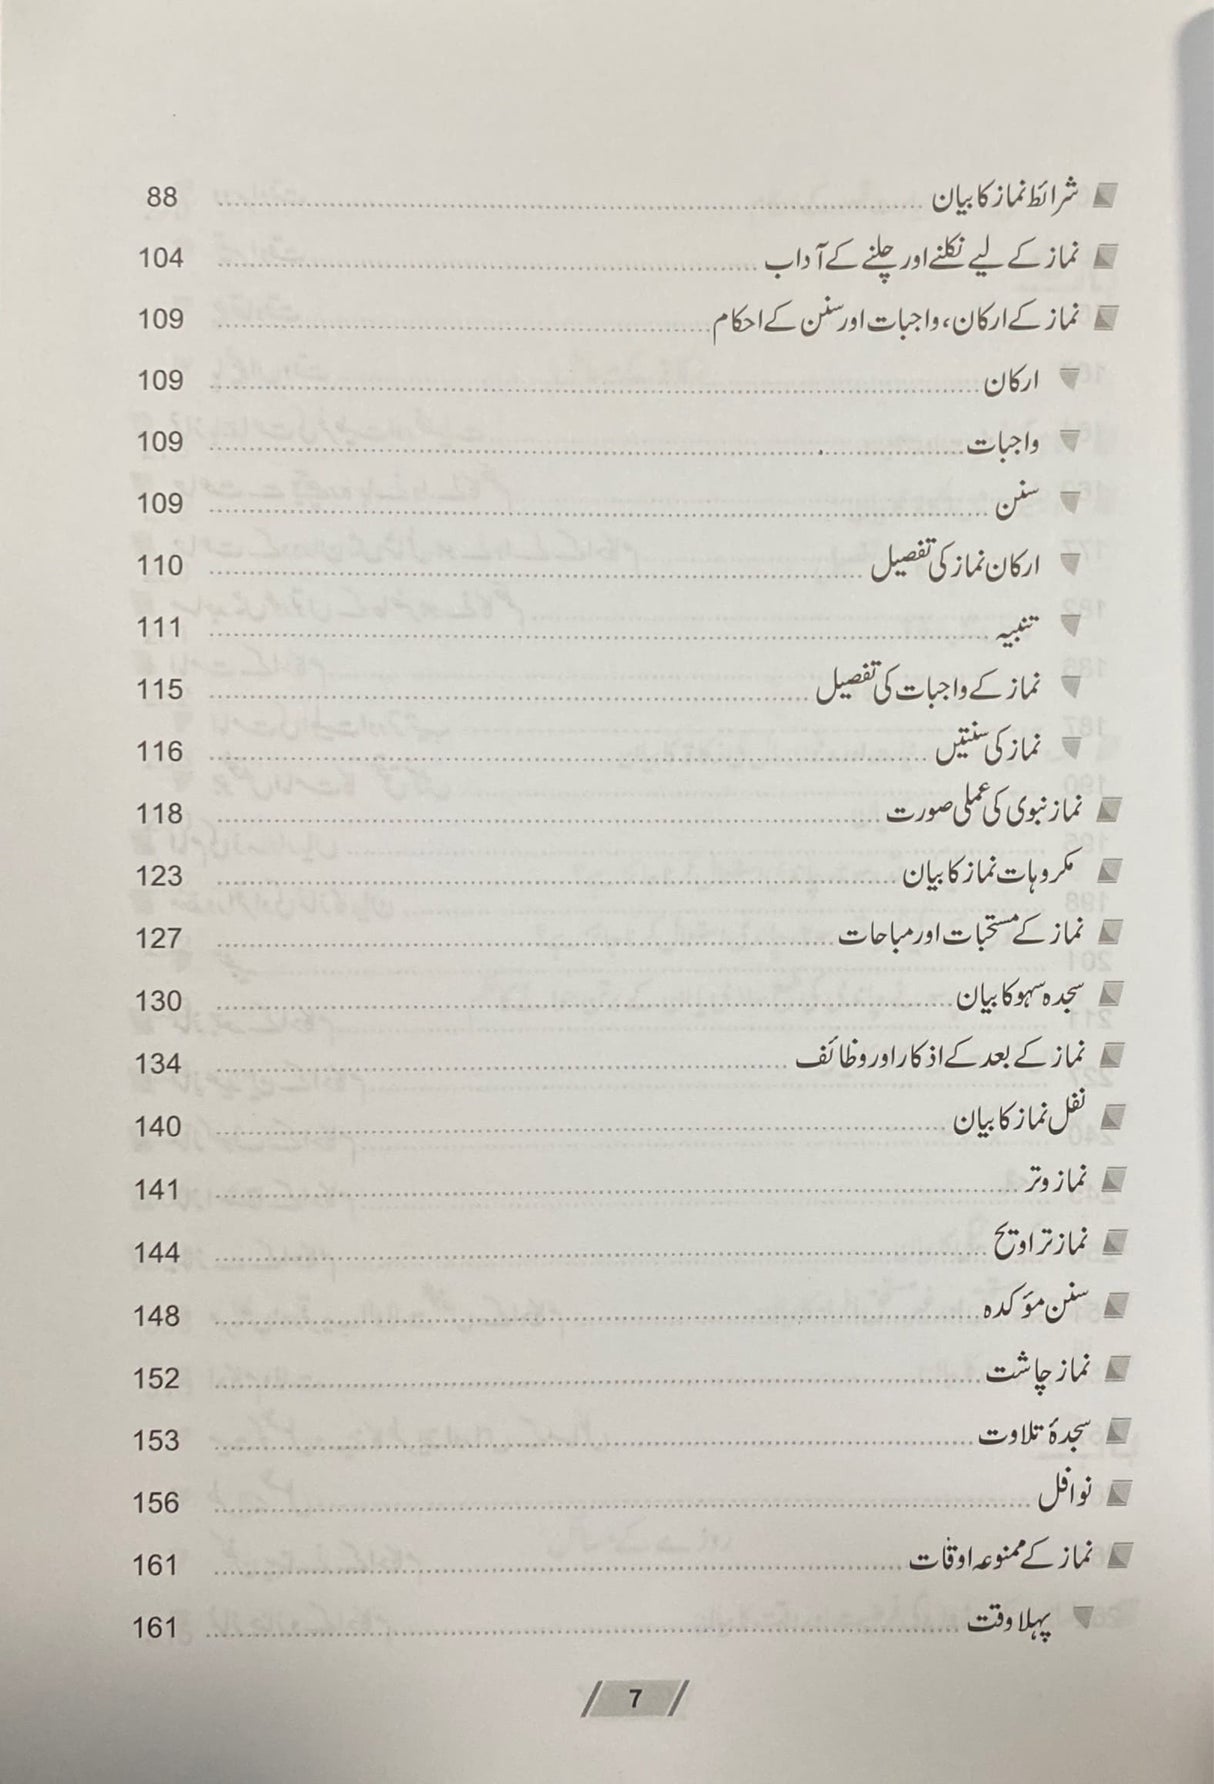 شرائط نماز کا بیان ........ 88
نماز کے لیے نکلنے اور چلنے کے آداب ........ 104
نماز کے ارکان، واجبات اور سنن کے احکام ........ 109
ارکان ........ 109
واجبات ........ 109
سنن ........ 109
ارکان نماز کی تفصیل ........ 110
تنبیہ ........ 111
نماز کے واجبات کی تفصیل ........ 115
نماز کی سنتیں ........ 116
نماز نبوی کی عملی صورت ........ 118
مکروہات نماز کا بیان ........ 123
نماز کے مستحبات اور مباحات ........ 127
سجدہ سہو کا بیان ........ 130
نماز کے بعد کے اذکار اور وظائف ........ 134
نفل نماز کا بیان ........ 140
نماز وتر ........ 141
نماز تراویح ........ 144
سنن مؤکدہ ........ 148
نماز چاشت ........ 152
سجدۂ تلاوت ........ 153
نوافل ........ 156
نماز کے ممنوعہ اوقات ........ 161
پہلا وقت ........ 161
7